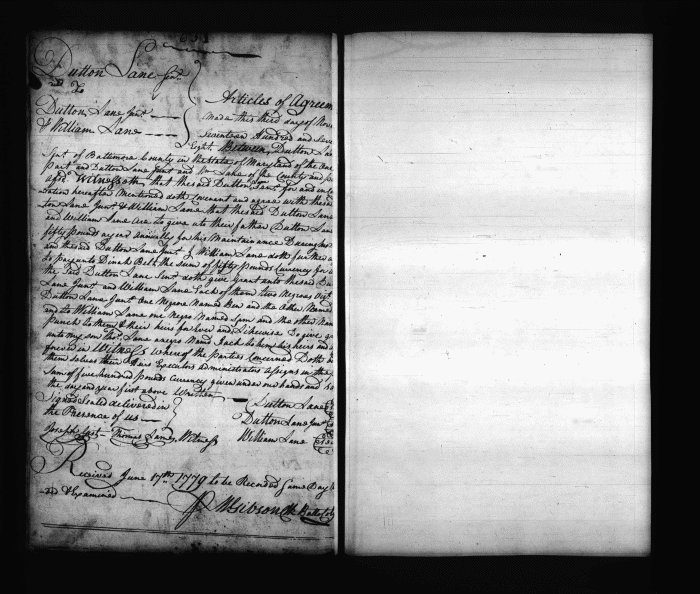 Dutton Lane Senr.
to
Dutton Lane Junr.
& William Lane
Articles of Agreem
Made this third day of Nov
Seventeen Hundred and Seve
Eight Between Dutton Lan
Senr. of Baltimore County in the State of Maryland of the one
Part and Dutton Lane Junr and Wm Lane of the County and
aforesd. Witnesseth that the said Dutton Senr. for and in
hereafter Mentioned doth Covenant and agree with the said
ton Lane Junr & William Lane that the said Dutton Lane
and William Lane are to give unto their father Dutton Lane
fifty Pounds a year annually for his Maintenance During his
and the sd Dutton Lane Junr & William Lane doth further a
to pay unto Dinah Belt the sum of fifty Pounds Currency for
the said Dutton Lane Senr doth give Grant unto the said Du
Lane Junr and William Lane Each of them two Negroes
Dutton Lane Junr One Negroe Named Ben and the Other Name
and to William Lane one Negro Named Sam and the other Nam
Punch to them & their heirs for Ever and Likewise to give
unto my son Lane a negro Named Jack to him his heirs and
forever in Witness whereof the parties Concerned Doth
them selves their Heirs Executors Administrators Assigns in the
Sum of five hundred pounds currency given under our hands and
the day and year first above Written
Signed Sealed delivered in
the Presence of us
Dutton Lane
Dutton Lane Junr
William Lane
Thomas James, Witness
Received June 17th. 1779 to be Recorded Same Day
and Examined
Gibson Clk Balto. Co